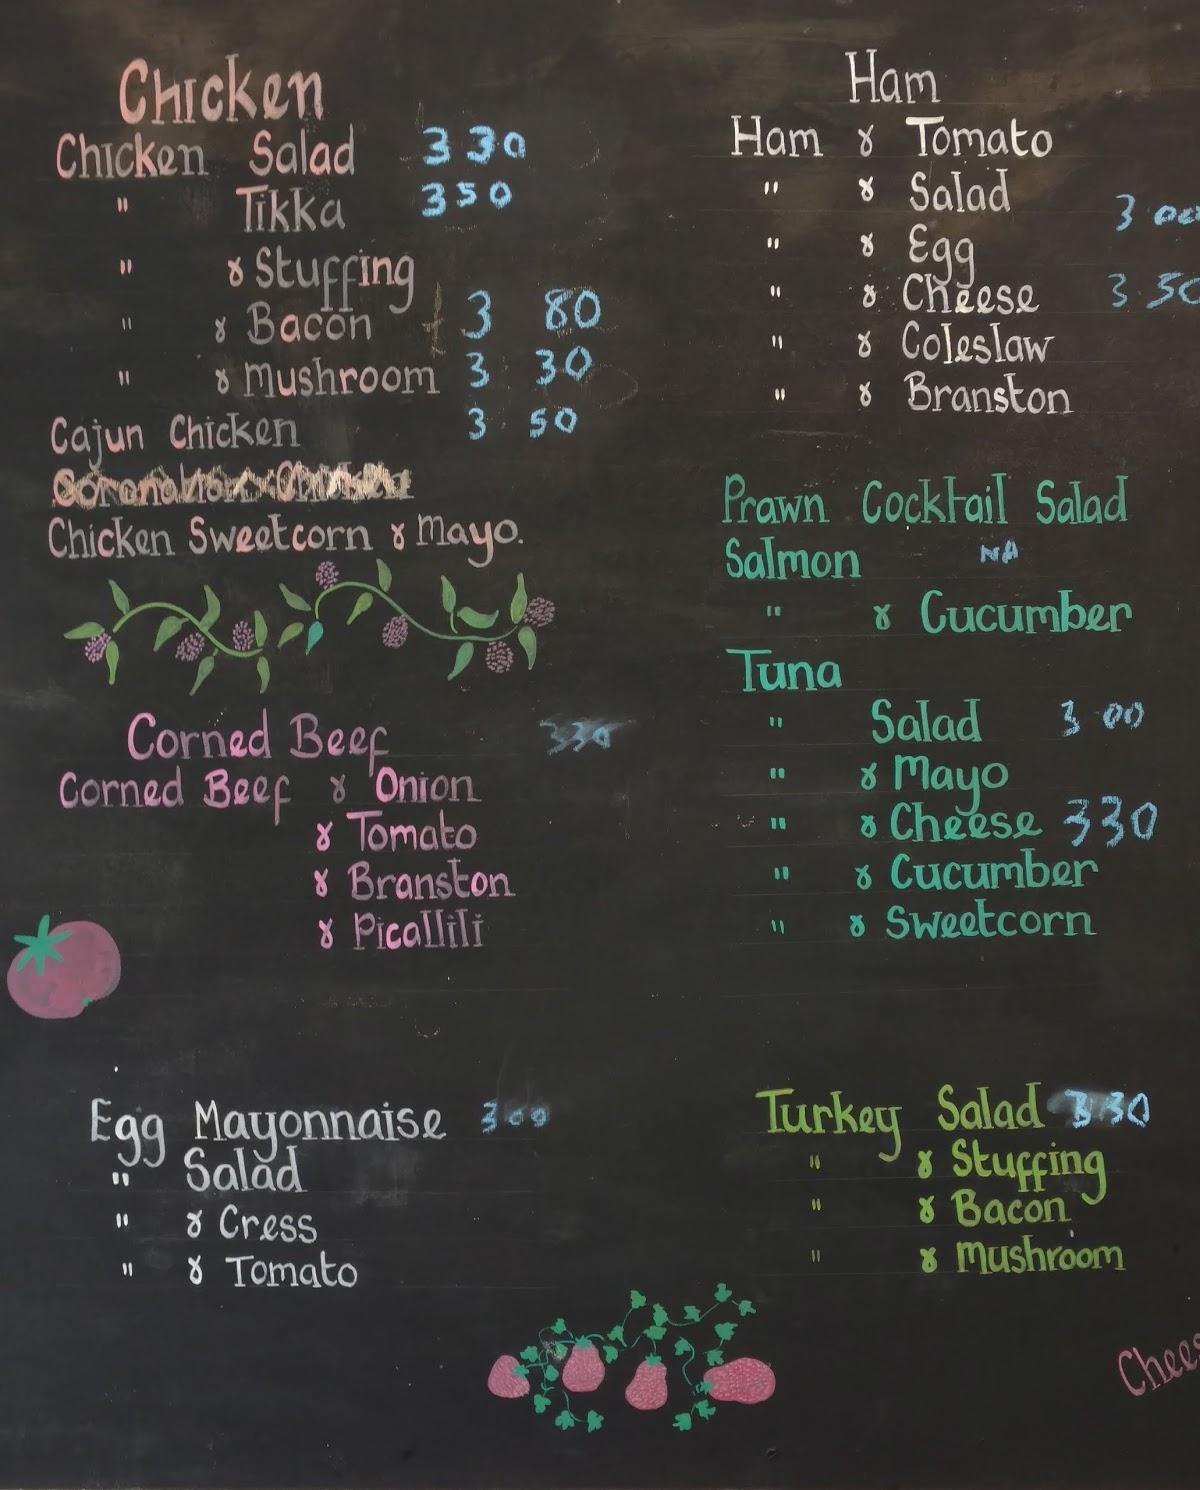 Chicken
Chicken Salad 3 30
" Tikka 3 50
" & Stuffing
" & Bacon 3 80
" & Mushroom 3 30
Cajun Chicken 3 50
Chicken Sweetcorn & Mayo.
Corned Beef 330
Corned Beef & Onion
& Tomato
& Branston
& Picallili
Egg Mayonnaise 3 00
" Salad
" & Cress
" & Tomato
Ham
Ham & Tomato
" & Salad 3 00
" & Egg
" & Cheese 3 50
" & Coleslaw
" & Branston
Prawn Cocktail Salad
Salmon NA
" & Cucumber
Tuna
" Salad 3 00
" & Mayo
" & Cheese 330
" & Cucumber
" & Sweetcorn
Turkey Salad 3 30
" & Stuffing
" & Bacon
" & Mushroom